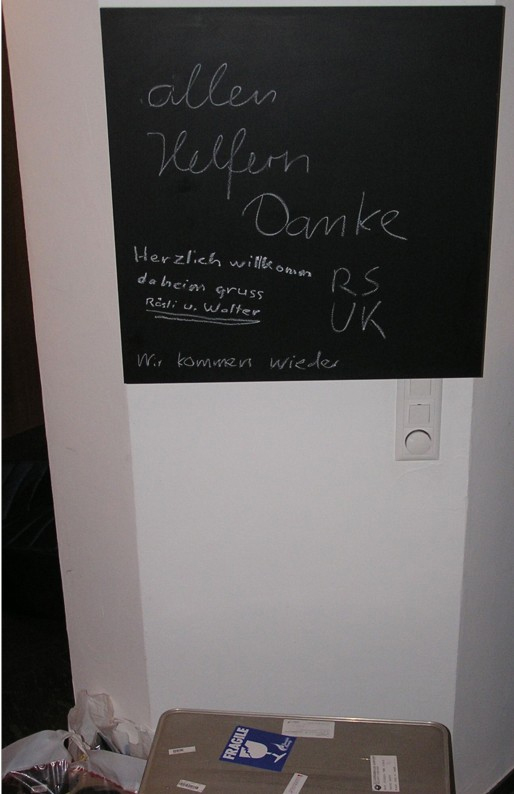 allen
Helfern
Danke
Herzlich willkomm
daheim gruss
Rösli u. Walter
RS
UK
Wir kommen wieder
FRAGILE